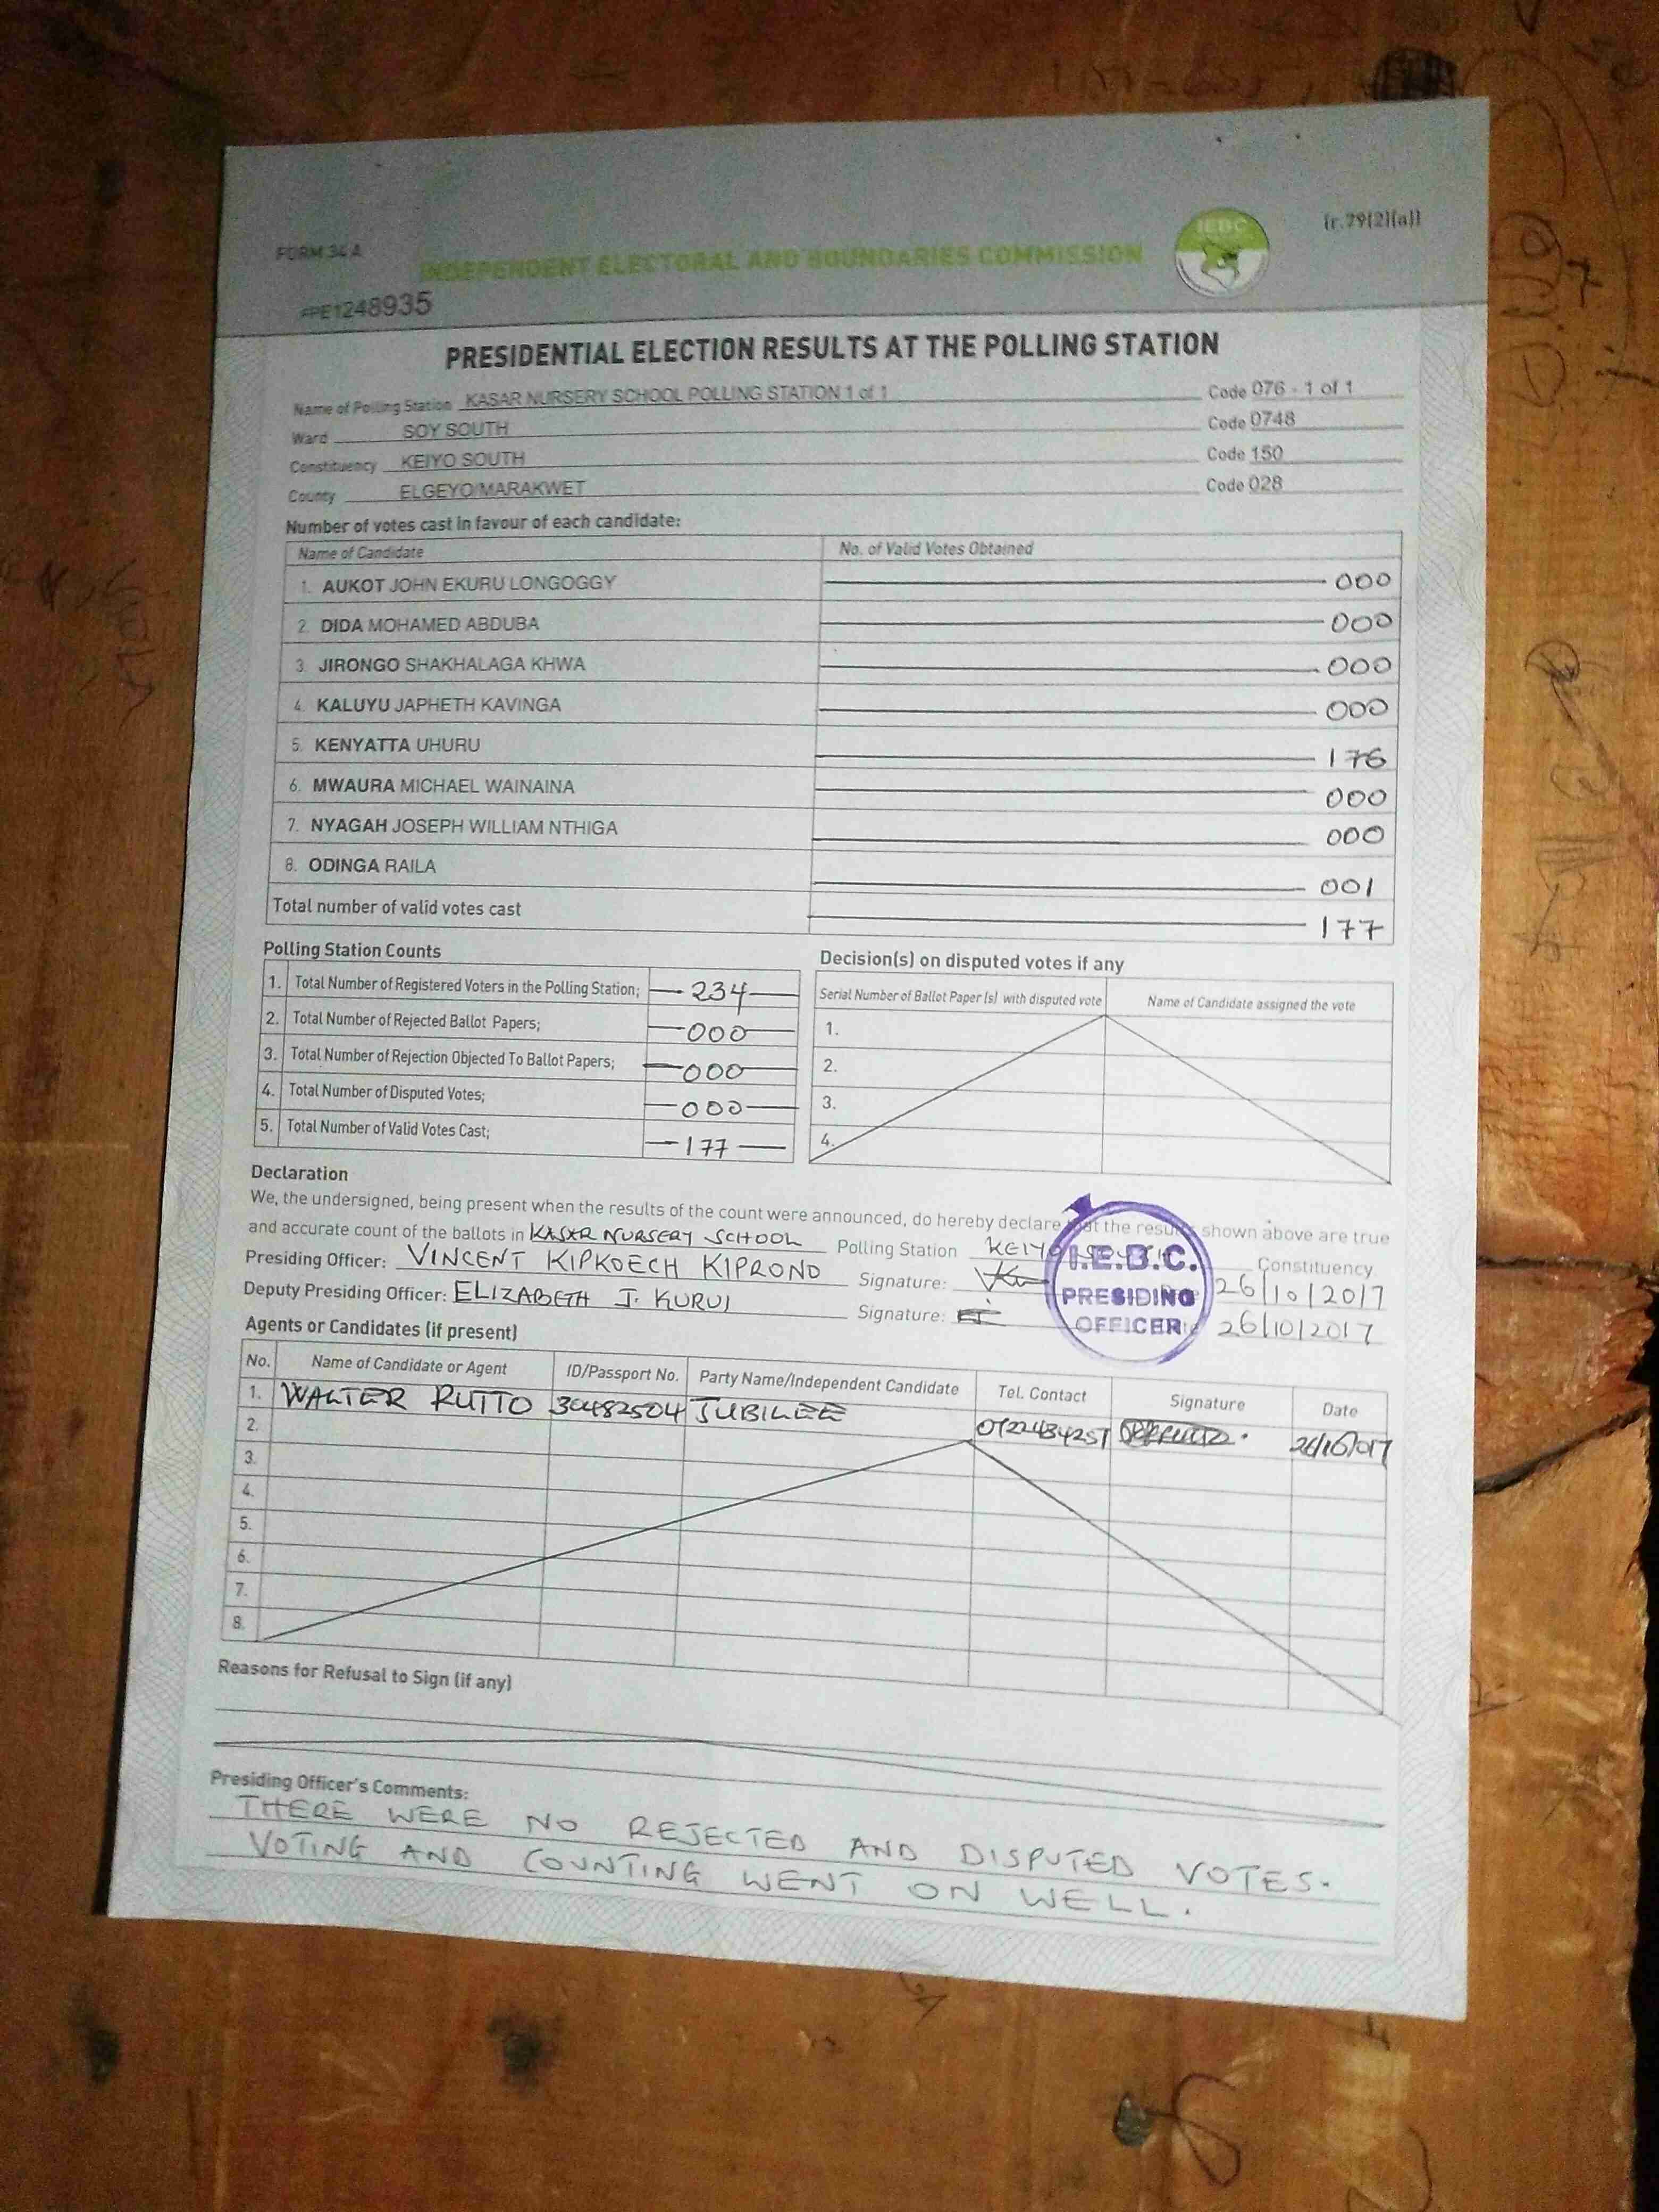 FORM 34 A
(r.79(2)(a))
INDEPENDENT ELECTORAL AND BOUNDARIES COMMISSION
IEBC
PE1248935
PRESIDENTIAL ELECTION RESULTS AT THE POLLING STATION
Name of Polling Station KASAR NURSERY SCHOOL POLLING STATION 1 of 1 Code 076 - 1 of 1
Ward SOY SOUTH Code 0748
Constituency KEIYO SOUTH Code 150
County ELGEYO/MARAKWET Code 028
Number of votes cast in favour of each candidate:
Name of Candidate No. of Valid Votes Obtained
1. AUKOT JOHN EKURU LONGOGGY 000
2. DIDA MOHAMED ABDUBA 000
3. JIRONGO SHAKHALAGA KHWA 000
4. KALUYU JAPHETH KAVINGA 000
5. KENYATTA UHURU 176
6. MWAURA MICHAEL WAINAINA 000
7. NYAGAH JOSEPH WILLIAM NTHIGA 000
8. ODINGA RAILA 001
Total number of valid votes cast 177
Polling Station Counts
1. Total Number of Registered Voters in the Polling Station; 234
2. Total Number of Rejected Ballot Papers; 000
3. Total Number of Rejection Objected To Ballot Papers; 000
4. Total Number of Disputed Votes; 000
5. Total Number of Valid Votes Cast; 177
Decision(s) on disputed votes if any
Serial Number of Ballot Paper (s) with disputed vote Name of Candidate assigned the vote
1.
2.
3.
4.
Declaration
We, the undersigned, being present when the results of the count were announced, do hereby declare that the results shown above are true
and accurate count of the ballots in KASAR NURSERY SCHOOL Polling Station KEIYO SOUTH Constituency
Presiding Officer: VINCENT KIPKOECH KIPRONO Signature: 26/10/2017
Deputy Presiding Officer: ELIZABETH J. KURUI Signature: 26/10/2017
I.E.B.C.
PRESIDING
OFFICER
Agents or Candidates (if present)
No. Name of Candidate or Agent ID/Passport No. Party Name/Independent Candidate Tel. Contact Signature Date
1. WALTER RUTTO 30482504 JUBILEE 0722434257 26/10/017
2.
3.
4.
5.
6.
7.
8.
Reasons for Refusal to Sign (if any)
Presiding Officer's Comments:
THERE WERE NO REJECTED AND DISPUTED VOTES.
VOTING AND COUNTING WENT ON WELL.